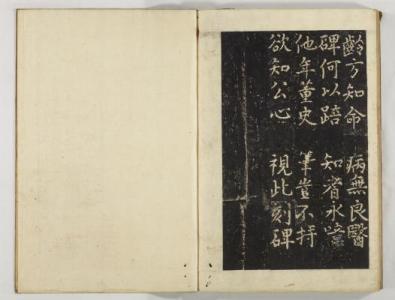 齡方知命 病無良醫
碑何以踣 知者永噫
他年董史 筆豈不持
欲知公心 視此刻碑